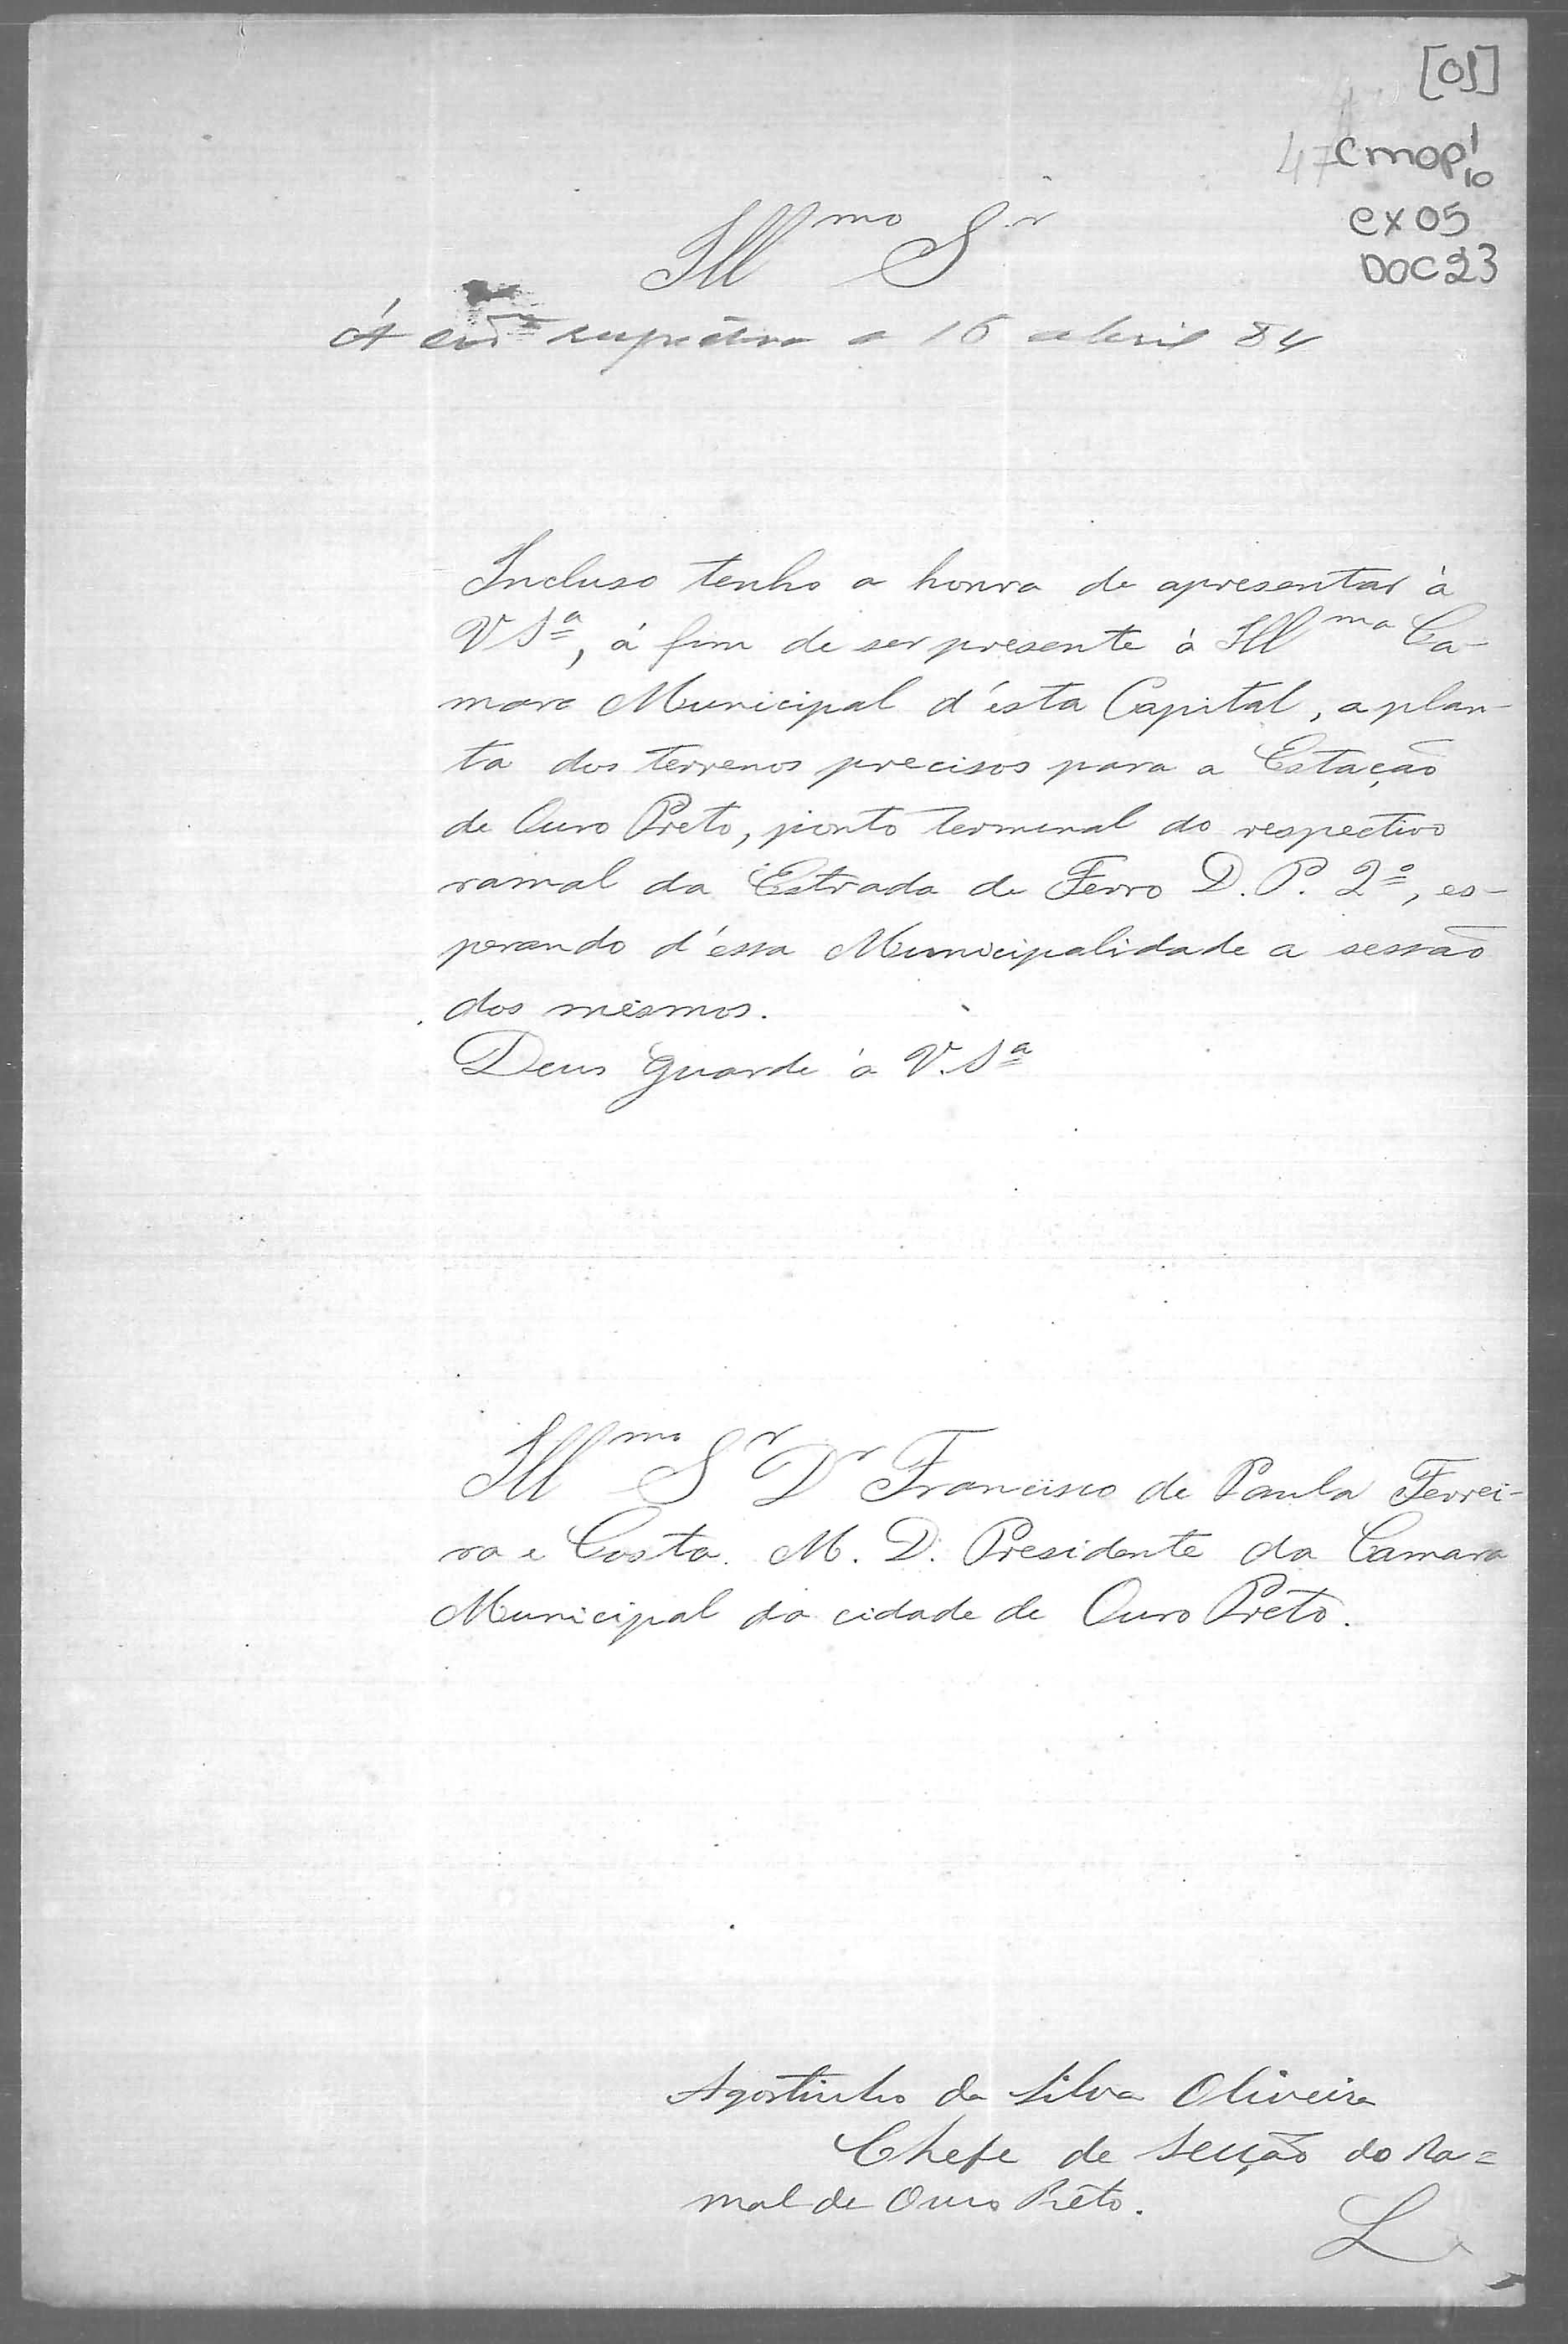 [01]
CMOP 1/10
CX 05
DOC 23
Ill^mo S^r
Á respectiva a 16 abril 84
Incluso tenho a honra de apresentar à
V S^a, á fim de ser presente á Ill^ma Ca-
mara Municipal d'ésta Capital, a plan-
ta dos terrenos precisos para a Estação
de Ouro Preto, ponto terminal do respectivo
ramal da Estrada de Ferro D. P. 2º, es-
perando d'éssa Municipalidade a sessão
dos mesmos.
Deus guarde á V. S^a
Ill^mo S^r D^r Francisco de Paula Ferrei-
ra e Costa. M. D. Presidente da Camara
Municipal da cidade de Ouro Preto.
Agostinho da Silva Oliveira
Chefe de Secção do Ra=
mal de Ouro Preto.
L